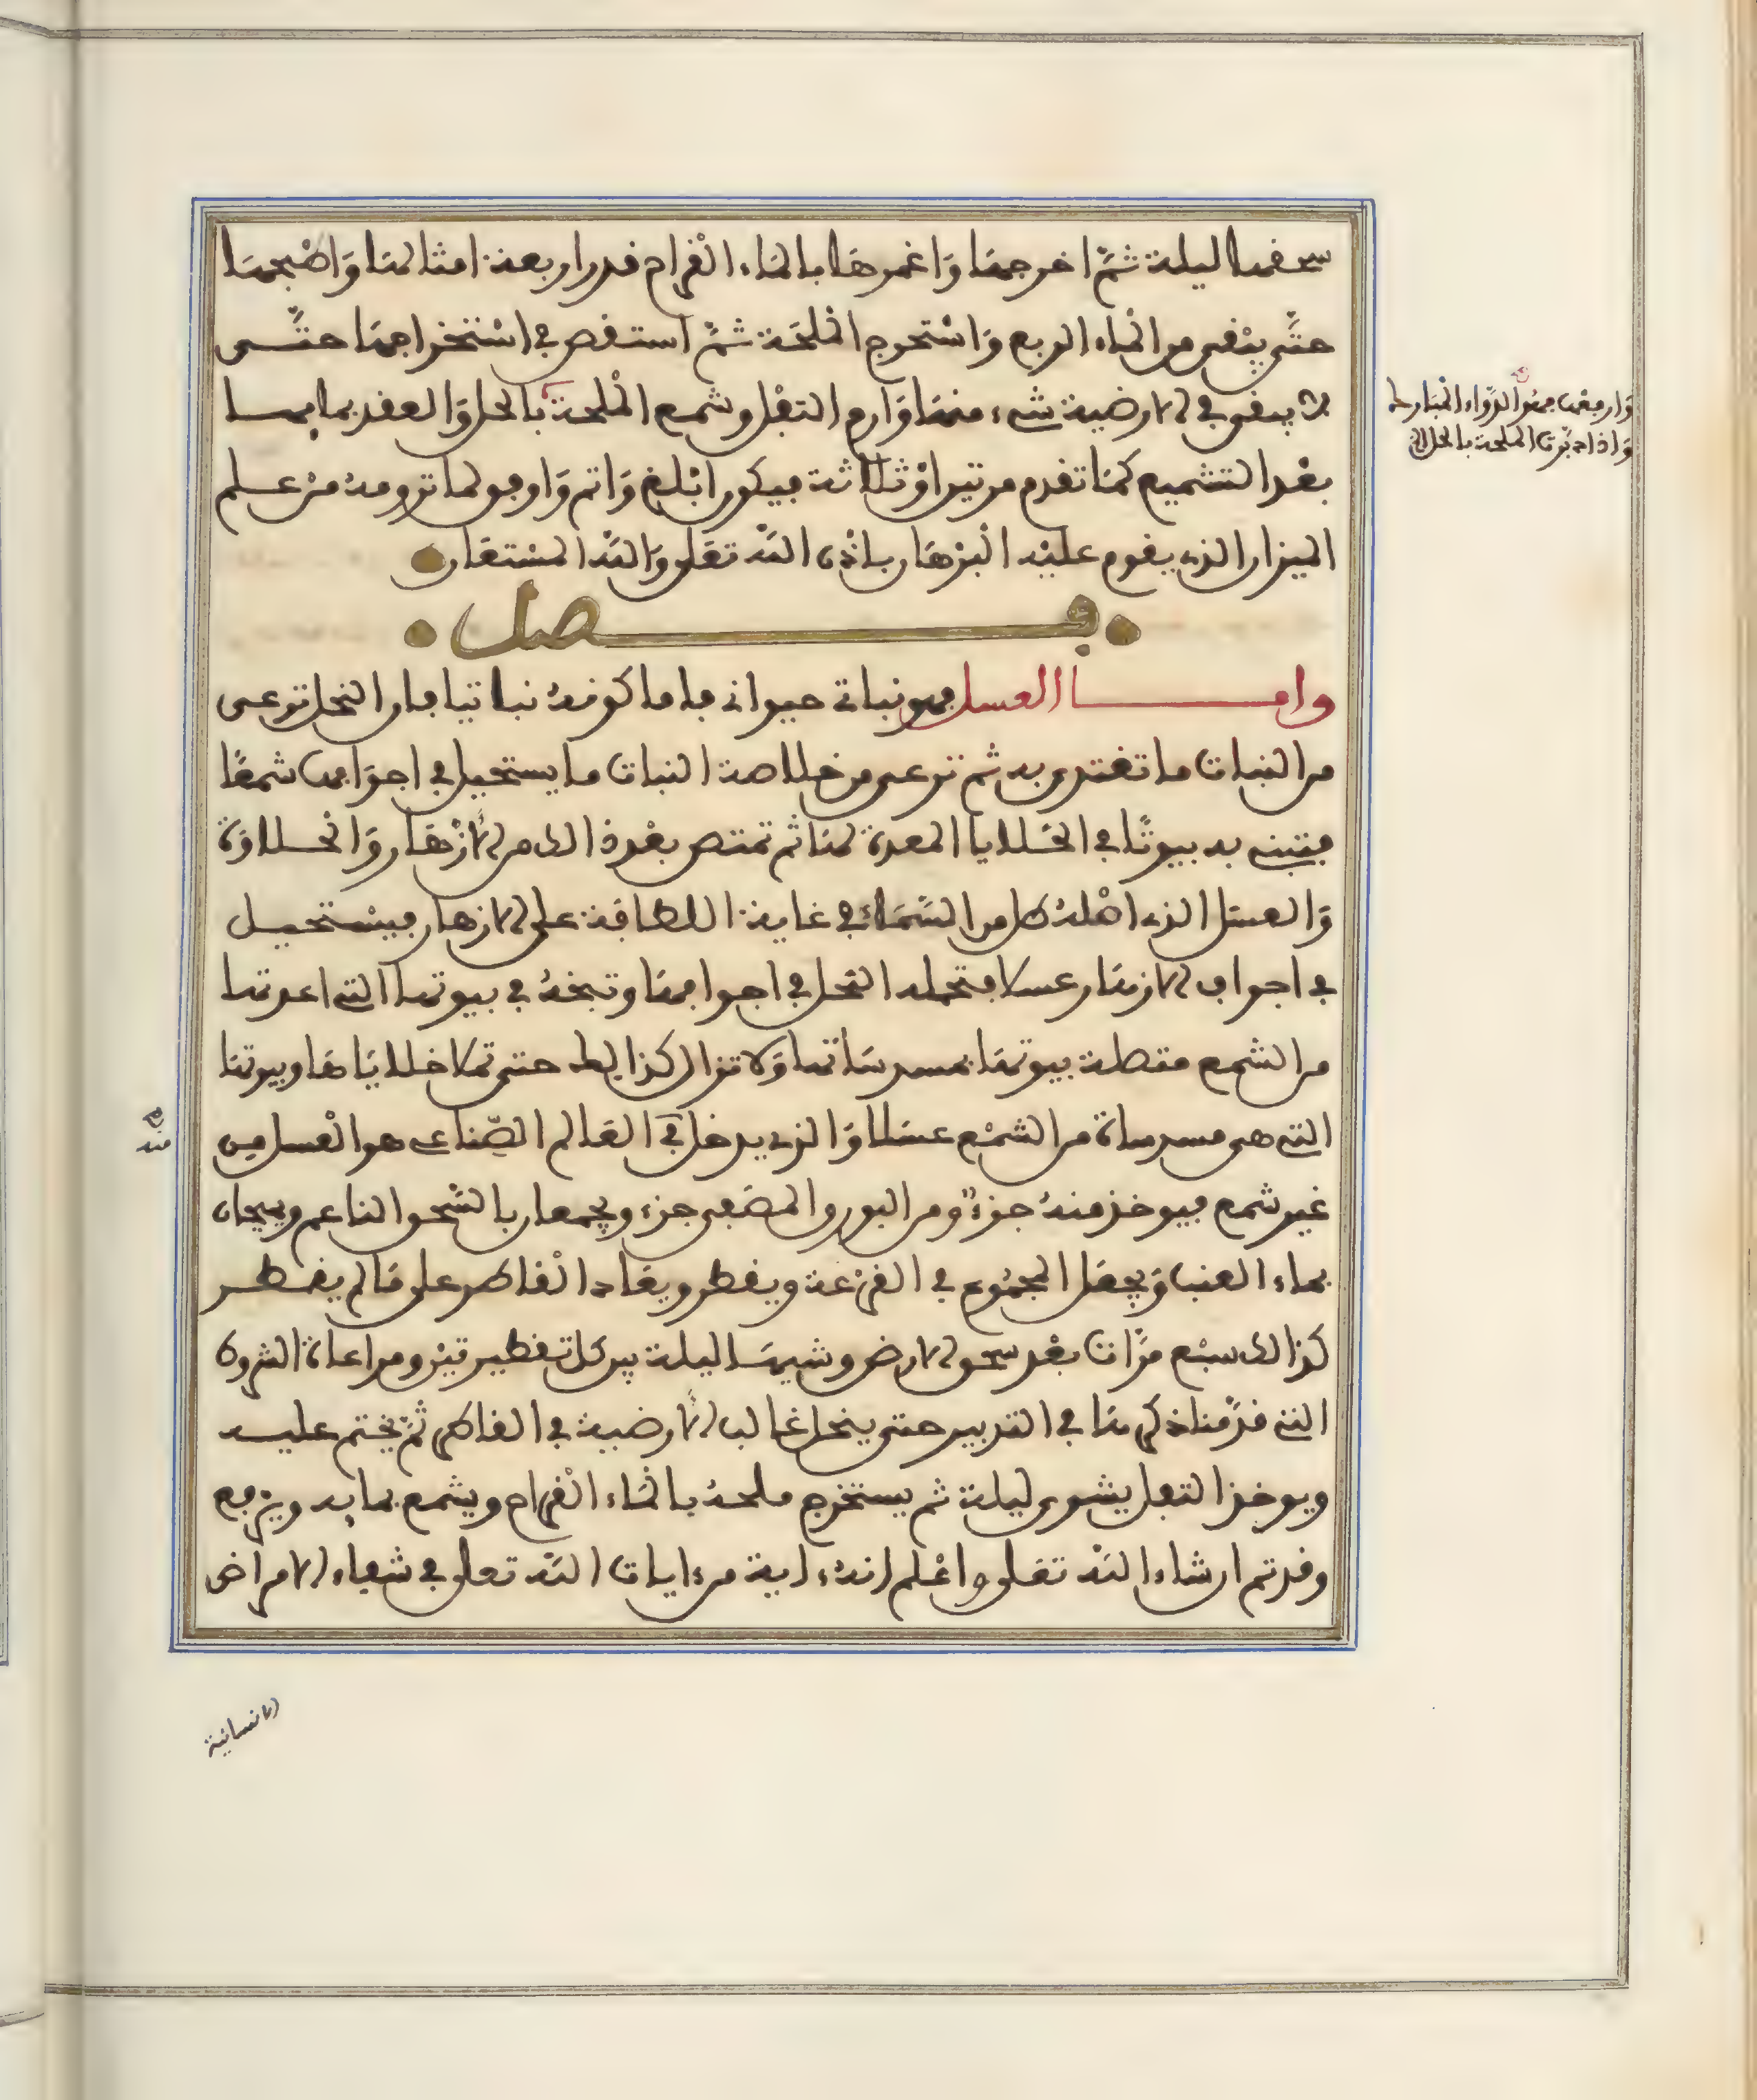 سحقها ليلة ثمّ اخرجها وَاغمرها بالماء القراح قدر اربعة امثالها وَاطبخها
حتَّى يبْقى من الماء الربع وَاسْتخرج الملحَة ثمَّ استقص في اسْتخراجها حتَّى
لا يبقى في الارضية شيء منها وَارم التفل وشمع الملحة بالحل وَالعقد بما بها
بعْد التشميع كمَا تقدم مرتين اوْ ثلاثة فيكون ابْلغ وَاتم وَاوفق لما ترومه منْ علم
الميزان الذي يقوم عليْه البرْهَان باذن اللَّه تعَلى وَاللَّه المسْتعَان
فصل
وامـا العسل فهو نباتي حيواني فاما كونهُ نباتيا فان النحل ترعى
من النبات ما تغتدى به ثم ترعى من خلاصة النبات ما يستحيل في اجوَافها شمعًا
فتبني به بيوتًا في الخلايا المعدة لهَا ثم تمتص بعْد ذالك من الازْهَار وَالحلاوَة
وَالعسَل الذي اصْلهُ طل من السَّمَاء في غاية اللطافة على الازهار فيسْتحيل
في اجواف الازهَار عسلا فتحمله النحل في اجوافهَا وتبخهُ في بيوتها التي اعدتها
من الشمع مقطلة بيوتهَا بمسدساتها وَلا تزال كذالك حتى تملا خلايَاها وبيوتهَا
التي هي مسدساة من الشمْع عسَلا وَالذي يدخل في العَالم الصّناعي هو العْسل من
غير شمع فيوخذ منهُ جزءٌ ومن البورق المصَفى جزء ويجمعان بالسَّحق الناعم ويعجان
بماء العنب وَيجعَل المجمُوع في القرْعة ويقطر ويعَاد القاطر على مَا لم يقطر
كذالك سبْع مرَّات بعْد سحق الارض وشيهَا ليلة بين كل تقطيرتيْن ومراعاة الشروط
التي قدَّمنا ذكرهَا في التدبير حتى ينحل غالب الارضية في القاطر ثمَّ يختم عليه
ويوخذ التفل يشوى ليلة ثم يستخرج ملحهُ بالمَاء القراح ويشمع بما به ويرفع
وقد تم ان شاء اللَّه تعَلى واعْلم انه ءاية من ءايات اللَّه تعلى في شفاء الامراض
وَان رفعت هَذا الدَّواء المبَارك
وَاذا دبّرت الملحة بالحل الخ
منه
الانسانية